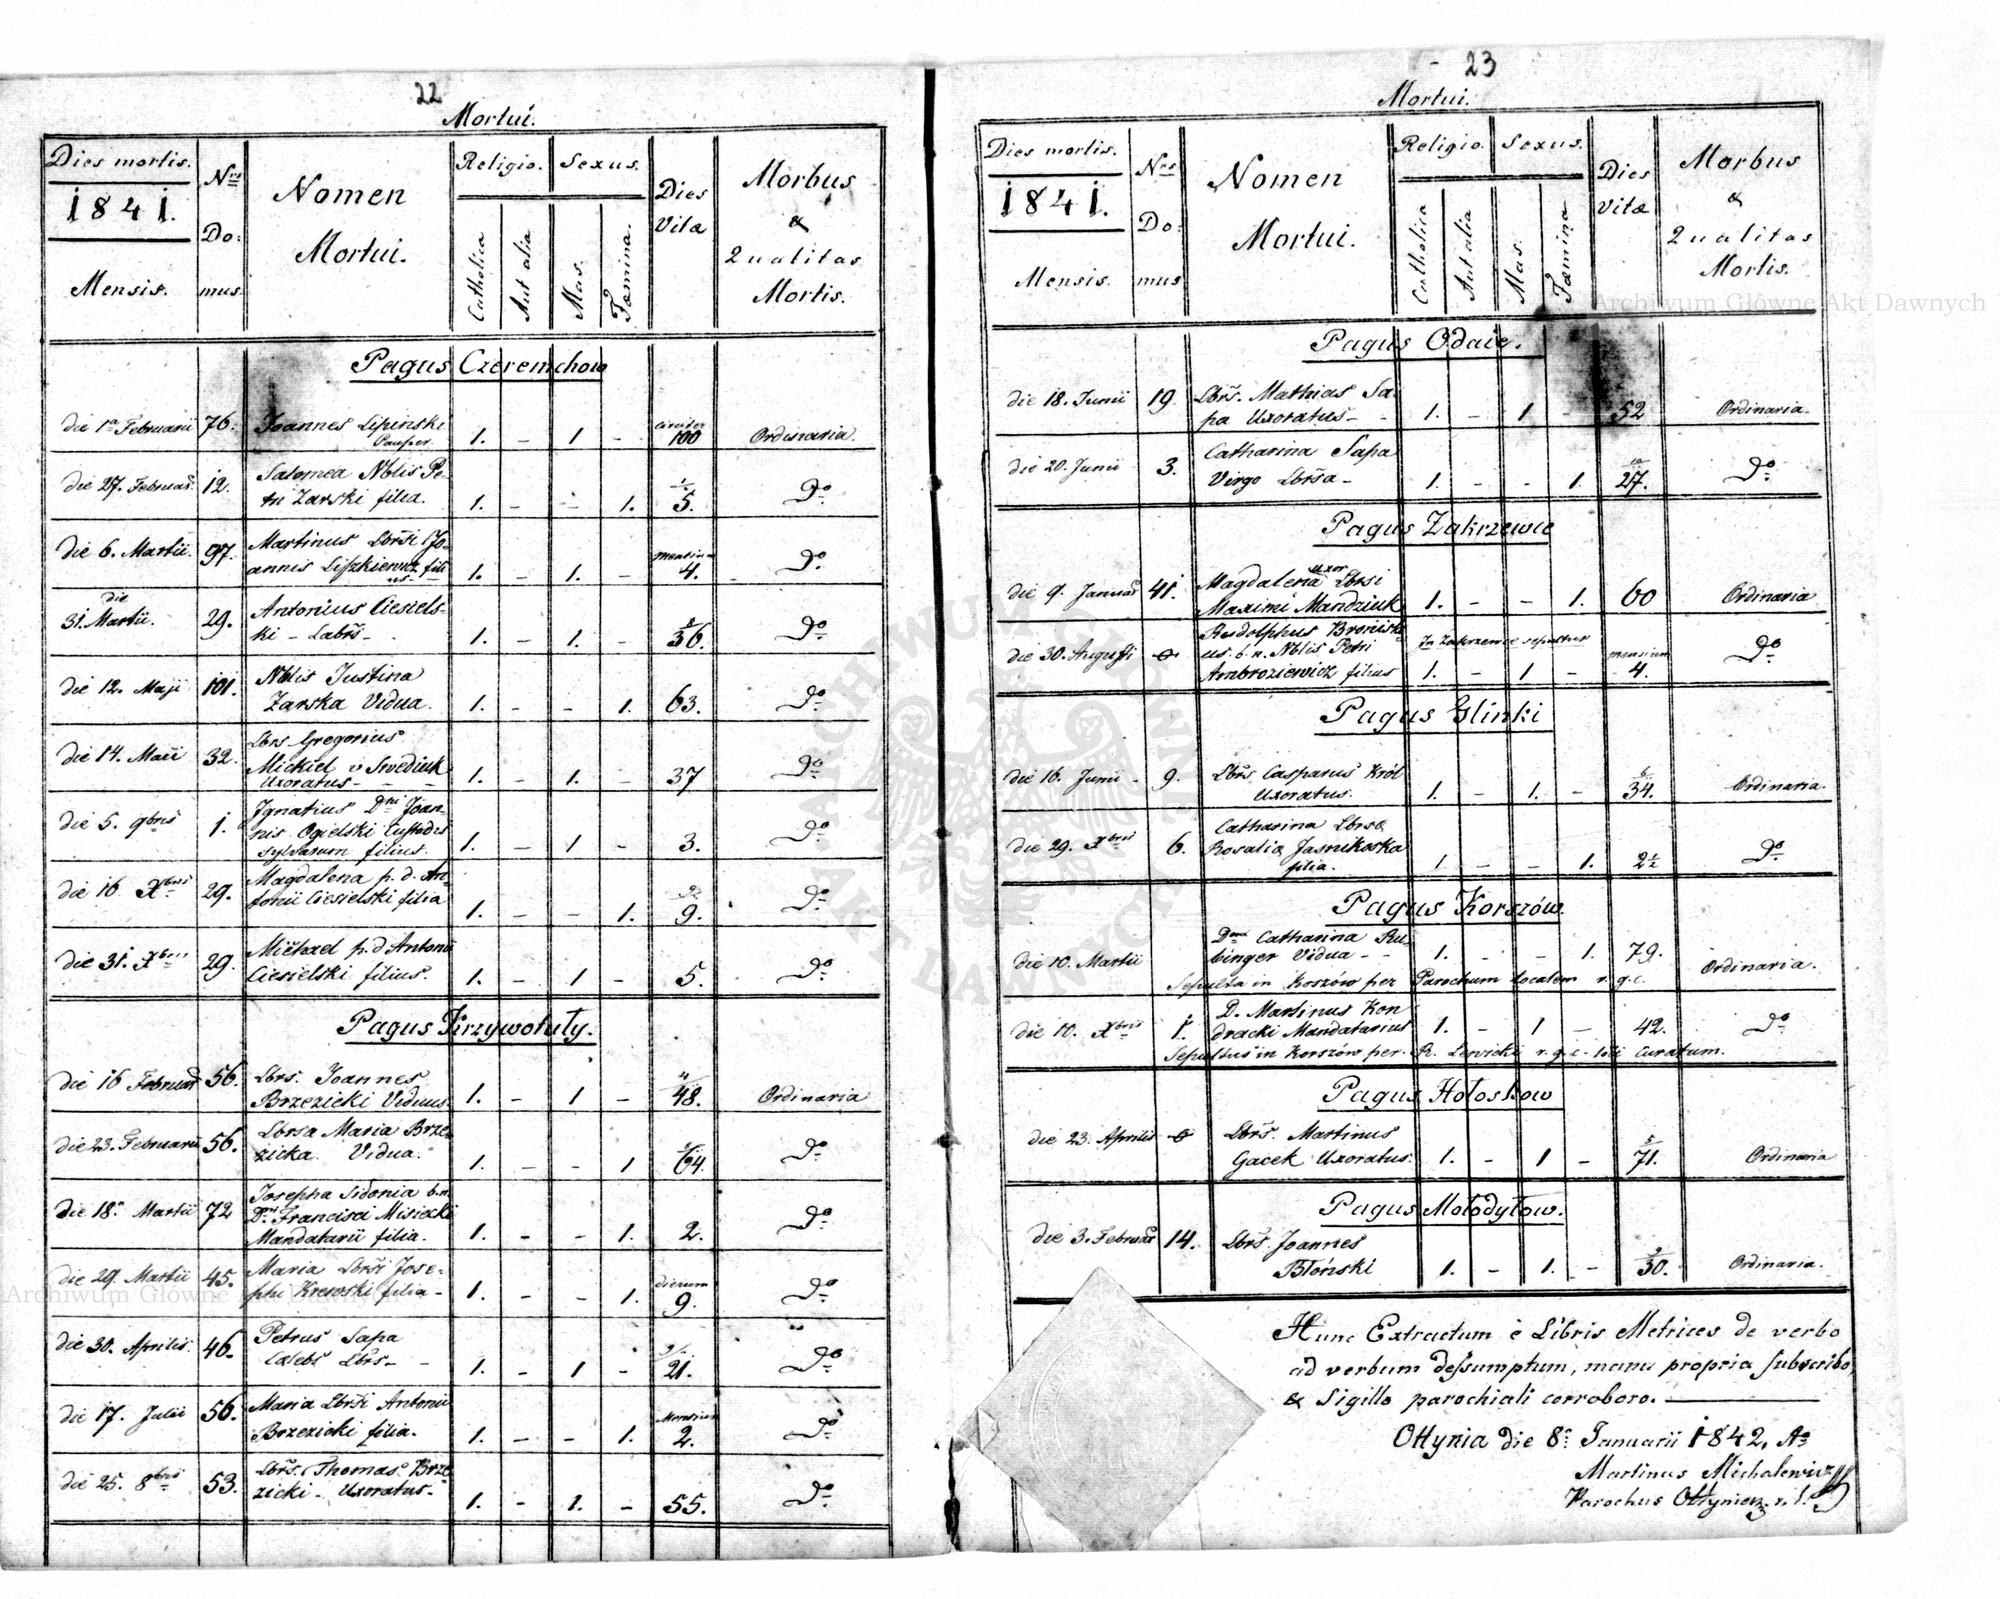 22
Mortui.
Dies mortis. Nrus Religio. Sexus. Morbus
1841. Nomen Dies &
Do: Mortui. Vitæ Qualitas
Mensis. mus. Catholica Aut alia Mas. Fæmina. Mortis.
Pagus Czeremchow
die 1a Februarii 76. Joannes Lipinski circiter
Pauper. 1. - 1 - 100 Ordinaria.
die 27. Februar. 12. Salomea Nblis Pe-
tri Zarski filia. 1. - - 1. 5. Do
Die 6. Martii. 97. Martinus Lbrsi Jo- mensium
annis Liszkiewicz fili
us. 1. - 1. - 4. Do
die
31. Martii. 29. Antonius Ciesiels-
ki - Labrs - 1. - 1. - 36. Do
die 12. Maji 101. Nblis Justina
Zarska Vidua. 1. - - 1. 63. Do
Die 14. Maii 32. Lbrs Gregorius
Mickiel v Swediuk
Uxoratus - 1. - 1. - 37 Do
die 5. 9bris 1. Ignatius Dni Joan-
nis Ogielski Custodis
sylvarum filius. 1. - 1 - 3. Do
die 16 Xbris 29. Magdalena p. d. An-
tonii Ciesielski filia 1. - - 1. 9. Do
die 31. Xbris 29. Michael p. d Antonii
Ciesielski filius. 1. - 1 - 5. Do
Pagus Krzywotuły.
die 16 Februar 56. Lbrs. Joannes
Brzezicki Viduus. 1. - 1 - 48. Ordinaria
die 23. Februarii 56. Lbrsa Maria Brze-
zicka. Vidua. 1. - - 1 64. Do
die 18a Martii 72 Josepha Sidonia b. n.
Dni Francisci Misiecki
Mandatarii filia. 1. - - 1. 2. Do
die 29. Martii 45. Maria Lbrsi Jose- dierum
phi Krewski filia - 1. - - 1. 9. Do
die 30. Aprilis 46. Petrus Sapa
Cælebs Lbrs - 1. - 1 - 21. Do
die 17. Julii 56. Maria Lbrsi Antonii Mensium
Brzezicki filia. 1. - - 1. 2. Do
die 25. 8bris 53. Lbrs. Thomas Brze
zicki - Uxoratus - 1. - 1. - 55. Do
- 23
Mortui.
Dies mortis. Nrus Religio. Sexus. Morbus
1841. Nomen Dies &
Do: Mortui. Vitæ Qualitas
Mensis. mus Catholica Aut alia Mas. Fæmina Mortis.
Pagus Odaie.
die 18. Junii 19. Lbrs. Mathias Sa-
pa Uxoratus - 1. - 1 - 52 Ordinaria
die 20. Junii 3. Catharina Sapa
Virgo Lbrsa - 1. - - 1. 27. Do
Pagus Zakrzewie
die 9. Januar 41. Magdalena uxor Lbrsi
Maximi Mandziuk 1. - - 1. 60 Ordinaria
die 30. Augusti Rudolphus Bronisla
us b. n. Nblis Petri In Zakrzewie sepultus mensium
Ambroziewicz filius 1. - 1 - 4. Do
Pagus Glinki
die 16. Junii - 9. Lbrs Casparus Król
Uxoratus. 1. - 1. - 34. Ordinaria.
die 29. Xbris 6. Catharina Lbrsæ
Rosaliæ Jasnikoska
filia. 1 - - 1. 2½ Do
Pagus Korszów.
die 10. Martii Dna Catharina Ru-
binger Vidua - - 1. - - 1. 79. Ordinaria.
Sepulta in Korszów per Parochum localem r. g. c.
die 10. Xbris 1. D. Martinus Kon
dracki Mandatarius 1. - 1 - 42. Do
Sepultus in Korszów per R. Lewicki r. g. c. loci Curatum.
Pagus Hołoskow
die 23. Aprilis Lbrs. Martinus
Gacek Uxoratus. 1. - 1 - 71. Ordinaria
Pagus Mołodyłow.
die 3. Februar 14. Lbrs. Joannes
Błoński 1. - 1. - 30. Ordinaria.
Hunc Extractum è Libris Metrices de verbo
ad verbum dessumptum, manu propria subscribo,
& Sigillo parochiali corroboro.
Ottynia die 8a Januarii 1842. Ao
Martinus Michalewicz
Parochus Ottyniens. r. l.
Archiwum Główne Akt Dawnych
Archiwum Główne Akt Dawnych
ARCHIWUM GŁÓWNE AKT DAWNYCH